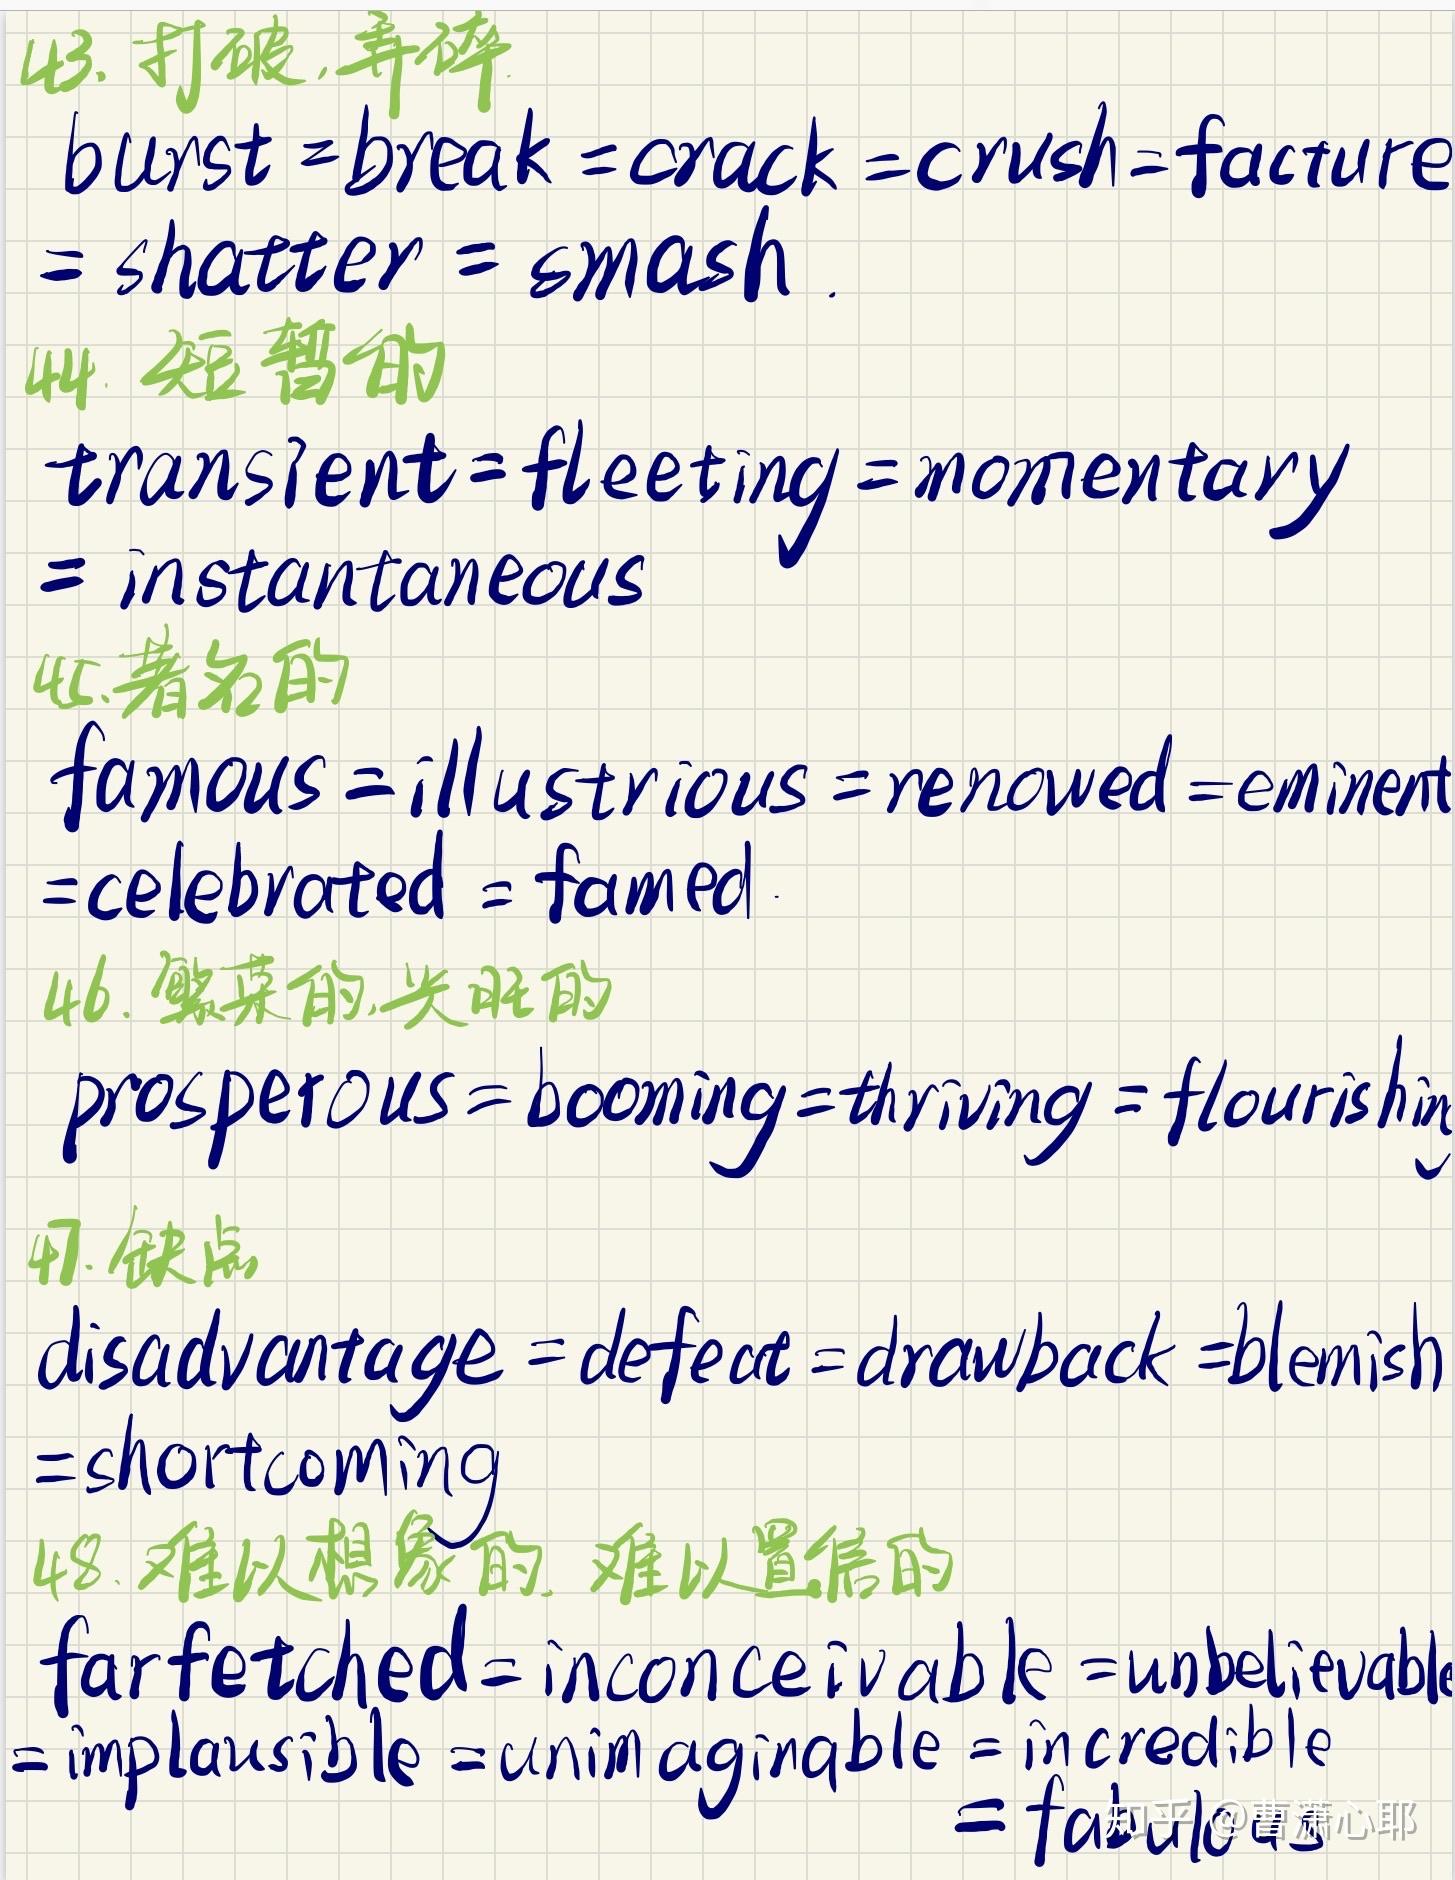 43. 打破,弄碎.
burst = break = crack = crush = facture
= shatter = smash.
44. 短暂的
transient = fleeting = momentary
= instantaneous
45. 著名的
famous = illustrious = renowed = eminent
= celebrated = famed.
46. 繁荣的,兴旺的
prosperous = booming = thriving = flourishing
47. 缺点
disadvantage = defeat = drawback = blemish
= shortcoming
48. 难以想象的, 难以置信的
farfetched = inconceivable = unbelievable
= implausible = unimaginable = incredible
= fabulous
知乎 @曹潇心耶